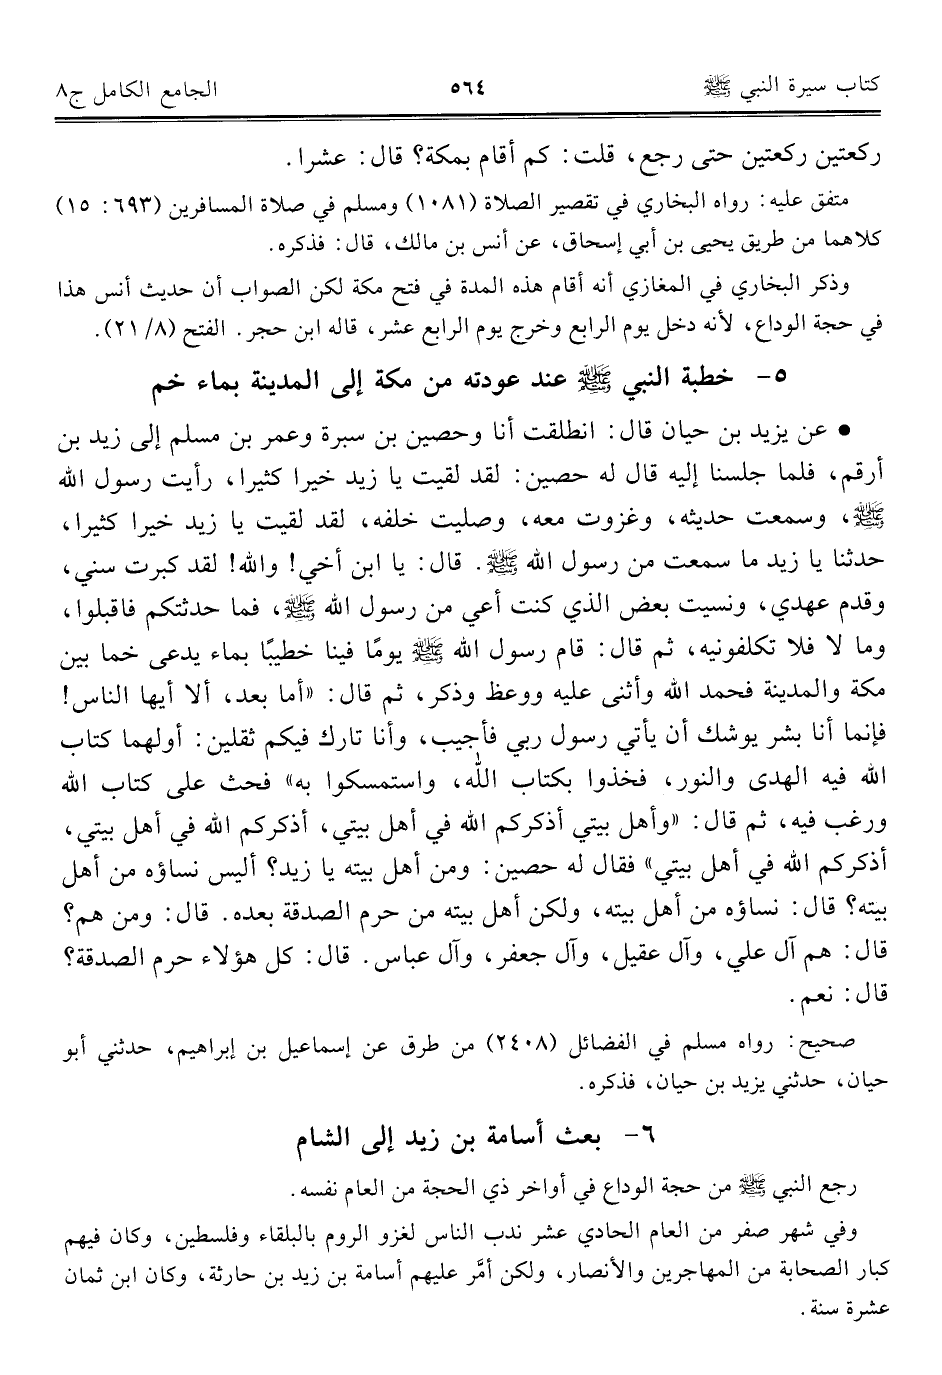 كتاب سيرة النبي ﷺ ٥٦٤ الجامع الكامل ج٨
ركعتين ركعتين حتى رجع، قلت: كم أقام بمكة؟ قال: عشرا.
متفق عليه: رواه البخاري في تقصير الصلاة (١٠٨١) ومسلم في صلاة المسافرين (٦٩٣: ١٥)
كلاهما من طريق يحيى بن أبي إسحاق، عن أنس بن مالك، قال: فذكره.
وذكر البخاري في المغازي أنه أقام هذه المدة في فتح مكة لكن الصواب أن حديث أنس هذا
في حجة الوداع، لأنه دخل يوم الرابع وخرج يوم الرابع عشر، قاله ابن حجر. الفتح (٨/ ٢١).
٥- خطبة النبي ﷺ عند عودته من مكة إلى المدينة بماء خم
• عن يزيد بن حيان قال: انطلقت أنا وحصين بن سبرة وعمر بن مسلم إلى زيد بن
أرقم، فلما جلسنا إليه قال له حصين: لقد لقيت يا زيد خيرا كثيرا، رأيت رسول الله
ﷺ، وسمعت حديثه، وغزوت معه، وصليت خلفه، لقد لقيت يا زيد خيرا كثيرا،
حدثنا يا زيد ما سمعت من رسول الله ﷺ. قال: يا ابن أخي! والله! لقد كبرت سني،
وقدم عهدي، ونسيت بعض الذي كنت أعي من رسول الله ﷺ، فما حدثتكم فاقبلوا،
وما لا فلا تكلفونيه، ثم قال: قام رسول الله ﷺ يومًا فينا خطيبًا بماء يدعى خما بين
مكة والمدينة فحمد الله وأثنى عليه ووعظ وذكر، ثم قال: «أما بعد، ألا أيها الناس!
فإنما أنا بشر يوشك أن يأتي رسول ربي فأجيب، وأنا تارك فيكم ثقلين: أولهما كتاب
الله فيه الهدى والنور، فخذوا بكتاب الله، واستمسكوا به» فحث على كتاب الله
ورغب فيه، ثم قال: «وأهل بيتي أذكركم الله في أهل بيتي، أذكركم الله في أهل بيتي،
أذكركم الله في أهل بيتي» فقال له حصين: ومن أهل بيته يا زيد؟ أليس نساؤه من أهل
بيته؟ قال: نساؤه من أهل بيته، ولكن أهل بيته من حرم الصدقة بعده. قال: ومن هم؟
قال: هم آل علي، وآل عقيل، وآل جعفر، وآل عباس. قال: كل هؤلاء حرم الصدقة؟
قال: نعم.
صحيح: رواه مسلم في الفضائل (٢٤٠٨) من طرق عن إسماعيل بن إبراهيم، حدثني أبو
حيان، حدثني يزيد بن حيان، فذكره.
٦- بعث أسامة بن زيد إلى الشام
رجع النبي ﷺ من حجة الوداع في أواخر ذي الحجة من العام نفسه.
وفي شهر صفر من العام الحادي عشر ندب الناس لغزو الروم بالبلقاء وفلسطين، وكان فيهم
كبار الصحابة من المهاجرين والأنصار، ولكن أمَّر عليهم أسامة بن زيد بن حارثة، وكان ابن ثمان
عشرة سنة.